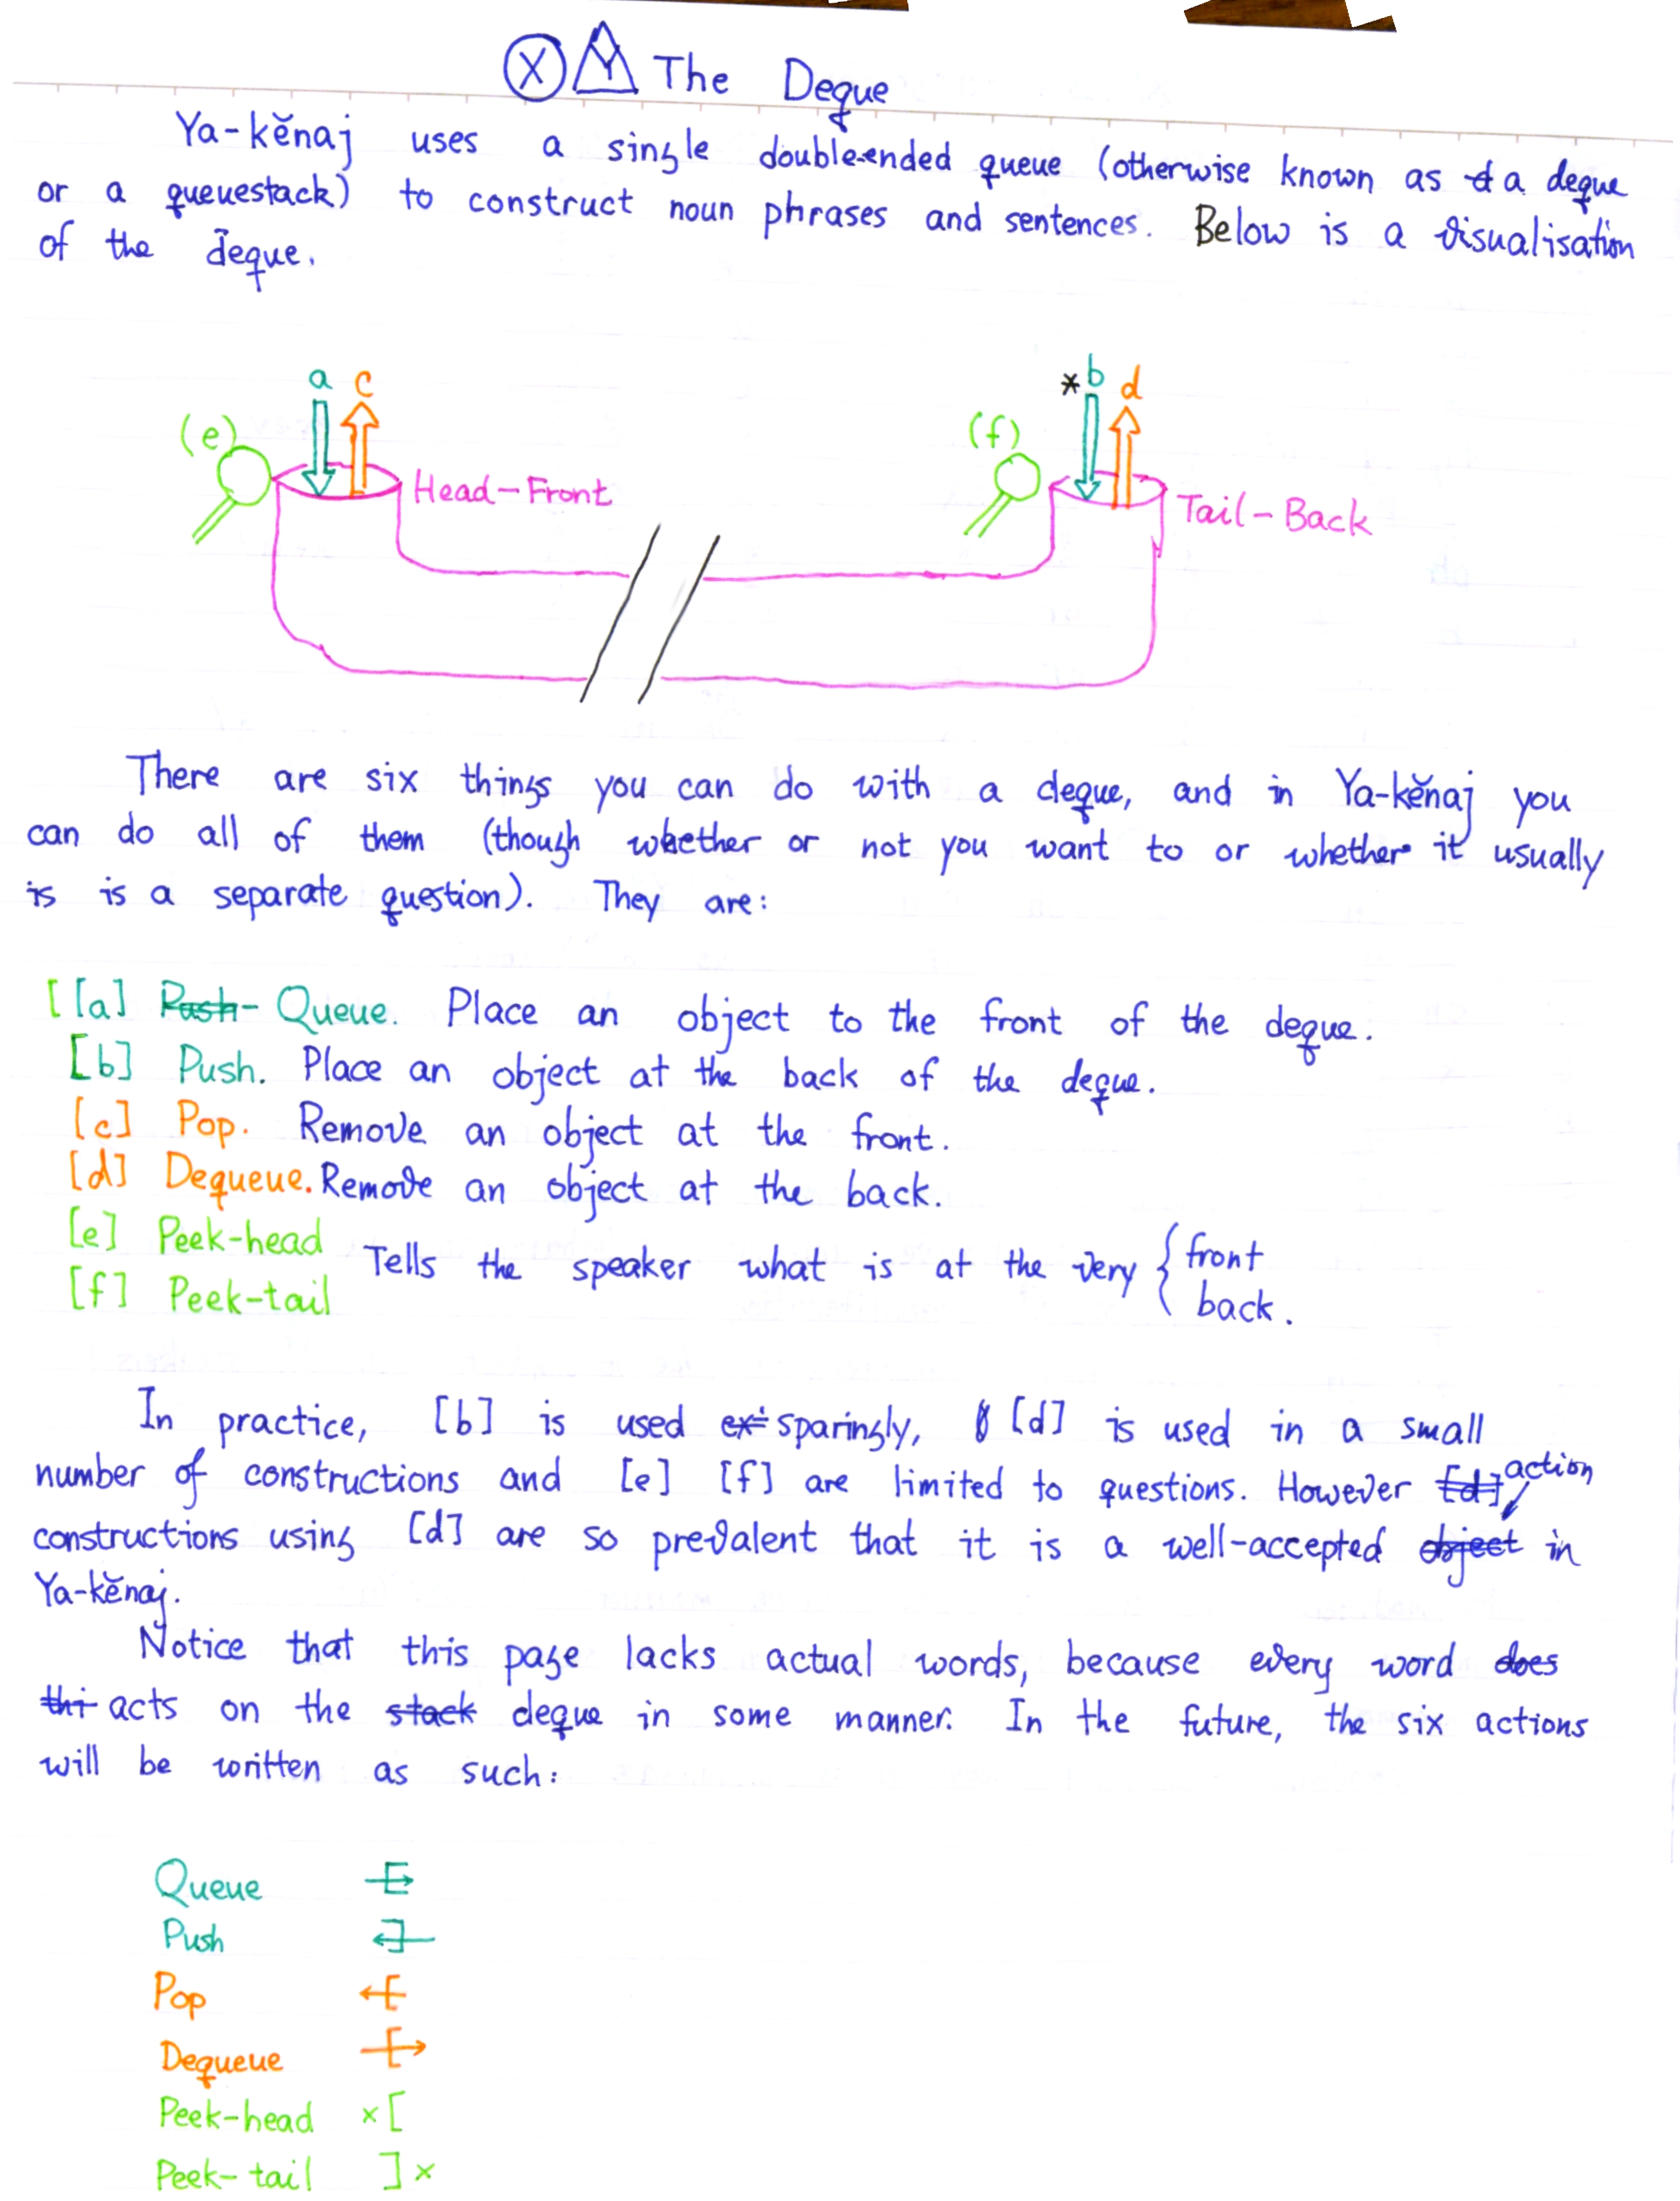 X Y The Deque
Ya-kĕnaj uses a single double-ended queue (otherwise known as a deque
or a queuestack) to construct noun phrases and sentences. Below is a visualisation
of the deque.
a c *b d
(e) (f)
Head-Front Tail-Back
There are six things you can do with a deque, and in Ya-kĕnaj you
can do all of them (though whether or not you want to or whether it usually
is is a separate question). They are:
[[a] Push- Queue. Place an object to the front of the deque.
[b] Push. Place an object at the back of the deque.
[c] Pop. Remove an object at the front.
[d] Dequeue. Remove an object at the back.
[e] Peek-head
[f] Peek-tail
Tells the speaker what is at the very { front
back.
In practice, [b] is used ex sparingly, [d] is used in a small
number of constructions and [e] [f] are limited to questions. However [d] action
constructions using [d] are so prevalent that it is a well-accepted object in
Ya-kĕnaj.
Notice that this page lacks actual words, because every word does
thi acts on the stack deque in some manner. In the future, the six actions
will be written as such:
Queue
Push
Pop
Dequeue
Peek-head ×[
Peek-tail ]×